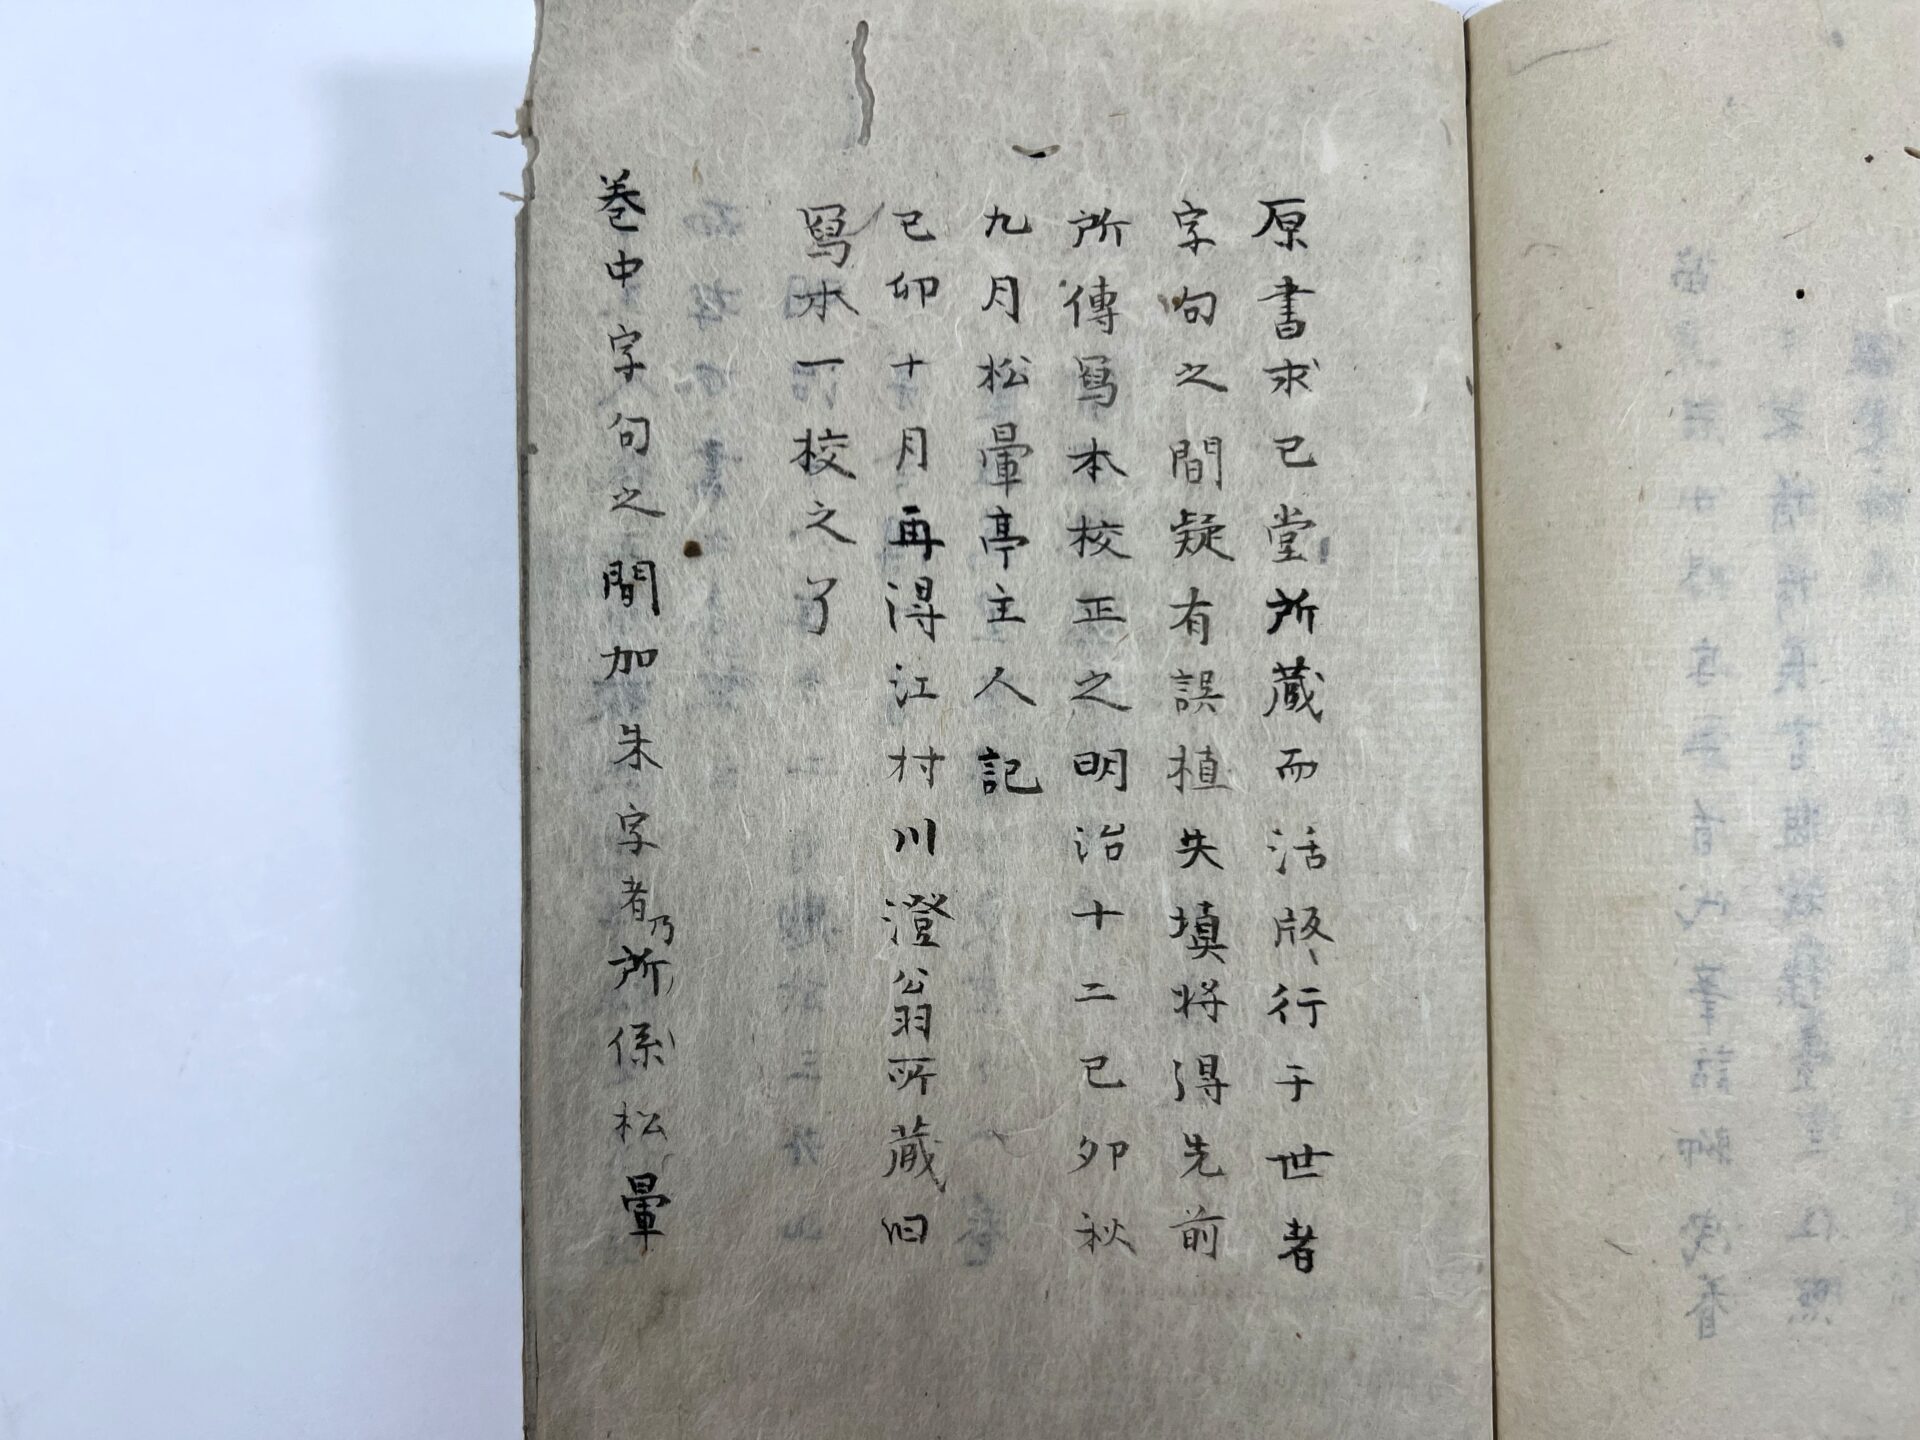 原書求己堂所蔵而活版行于世者
字句之間疑有誤植失填将得先前
所傳冩本校正之明治十二己卯秋
九月松暈亭主人記
己卯十月再得江村川澄翁所蔵旧
冩本一校之了
巻中字句之間加朱字者乃所係松暈